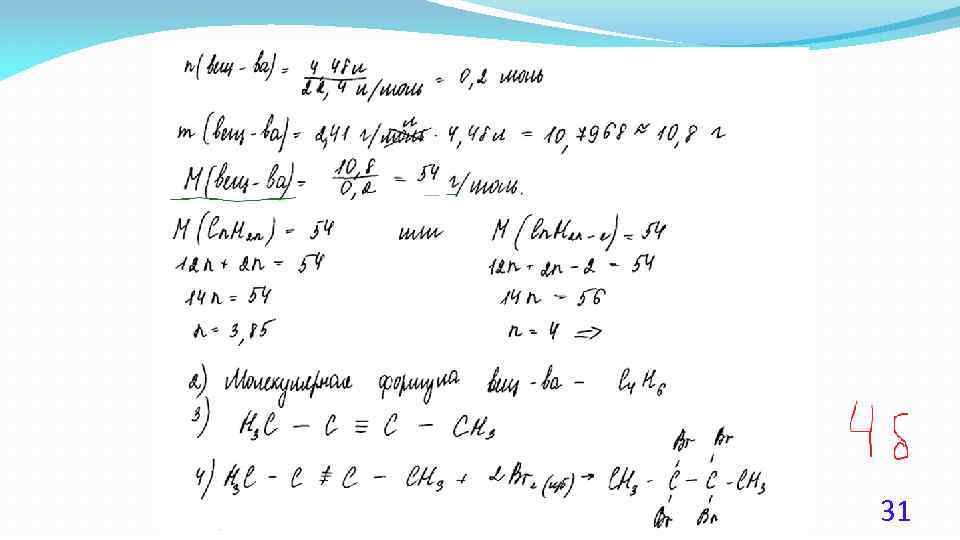 n(вещ-ва) = 4,48л / 22,4 л/моль = 0,2 моль
m(вещ-ва) = 2,41 г/л · 4,48л = 10,7968 ≈ 10,8 г
M(вещ-ва) = 10,8 / 0,2 = 54 г/моль.
M(CnH2n) = 54 или M(CnH2n-2) = 54
12n + 2n = 54 12n + 2n - 2 = 54
14n = 54 14n = 56
n = 3,85 n = 4 =>
2) Молекулярная формула вещ-ва - C4H6
3) H3C - C ≡ C - CH3
Br Br
4) H3C - C ≡ C - CH3 + 2Br2 (изб) → CH3 - C - C - CH3
Br Br
4 б
31